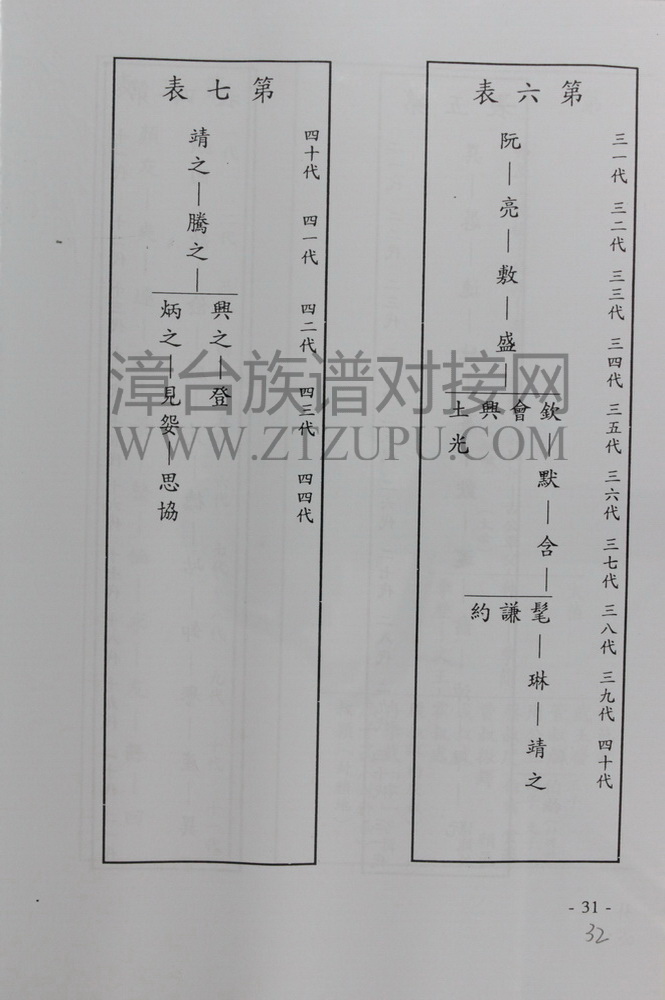 第六表
三一代 三二代 三三代 三四代 三五代 三六代 三七代 三八代 三九代 四十代
阮—亮—敷—盛—
欽—默—含—
會
興
土光
髦—琳—靖之
謙
約
第七表
四十代 四一代 四二代 四三代 四四代
靖之—騰之—
興之—登
炳之—見㛄—思協
漳台族谱对接网
WWW.ZTZUPU.COM
- 31 -
32